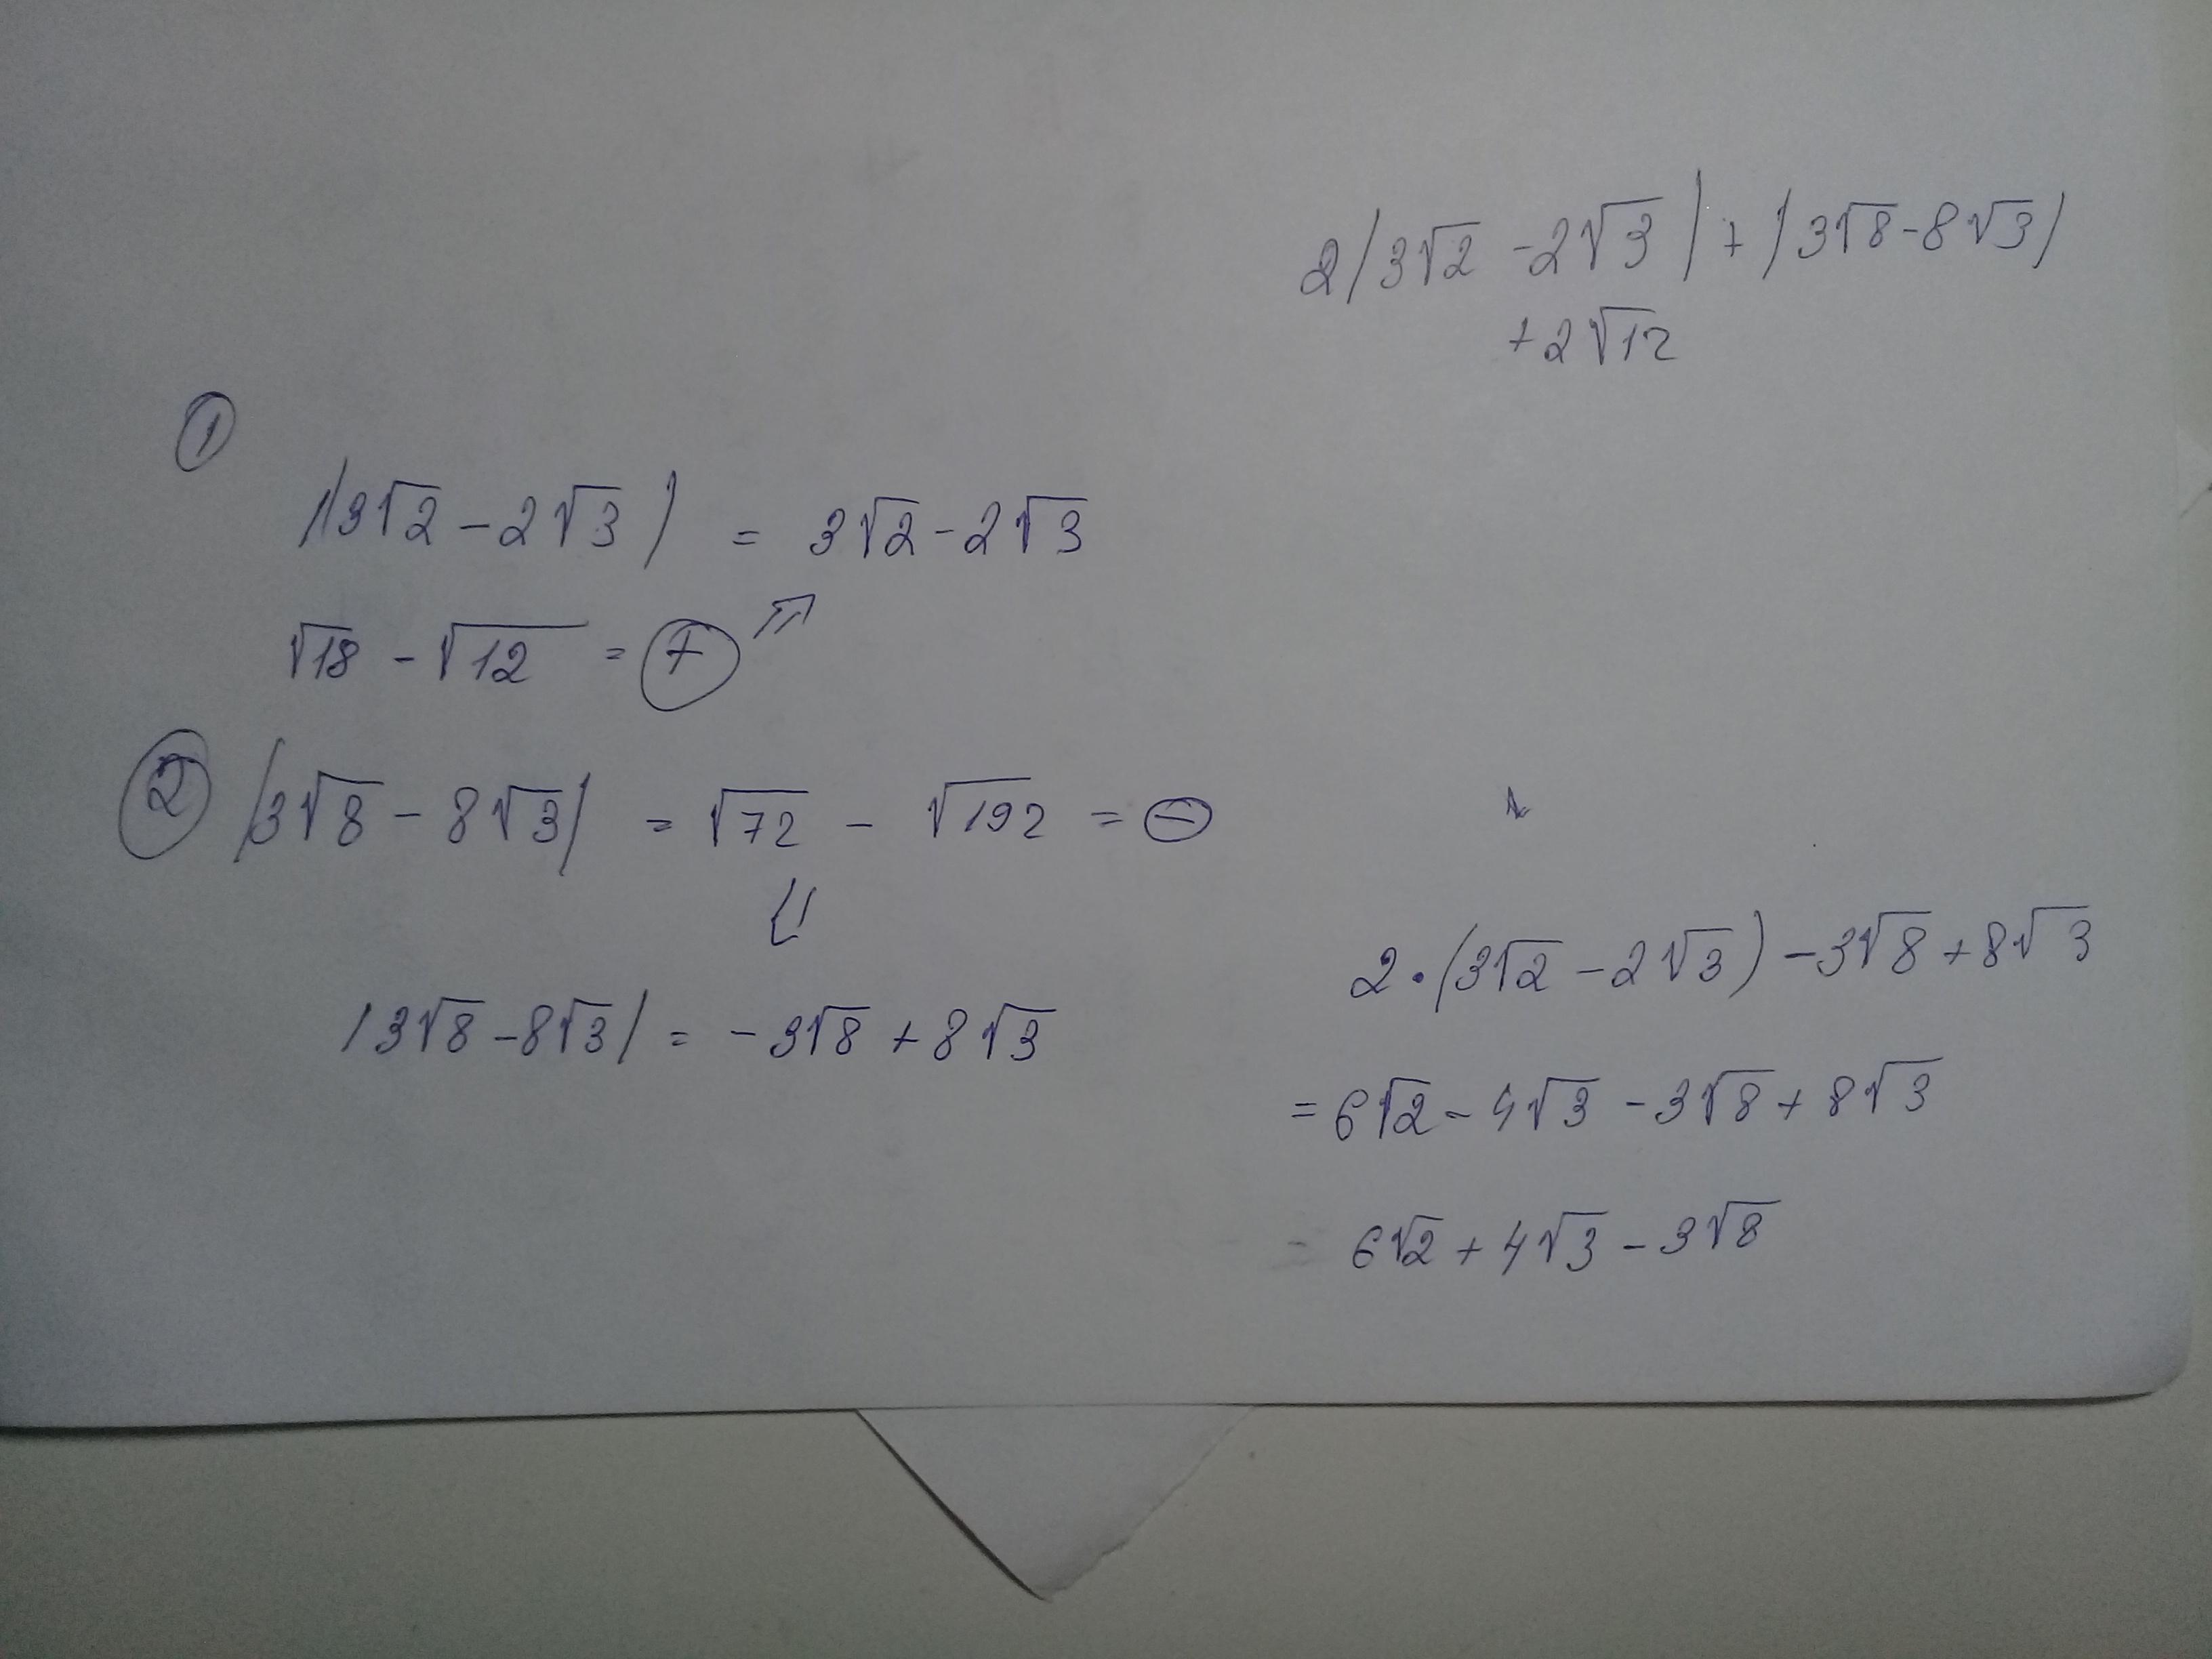 2|3√2 - 2√3| + |3√8 - 8√3|
+ 2√12
①
|3√2 - 2√3| = 3√2 - 2√3
√18 - √12 = ⊕ ⇗
② |3√8 - 8√3| = √72 - √192 = ⊖
⇓
|3√8 - 8√3| = -3√8 + 8√3
2·(3√2 - 2√3) - 3√8 + 8√3
= 6√2 - 4√3 - 3√8 + 8√3
= 6√2 + 4√3 - 3√8